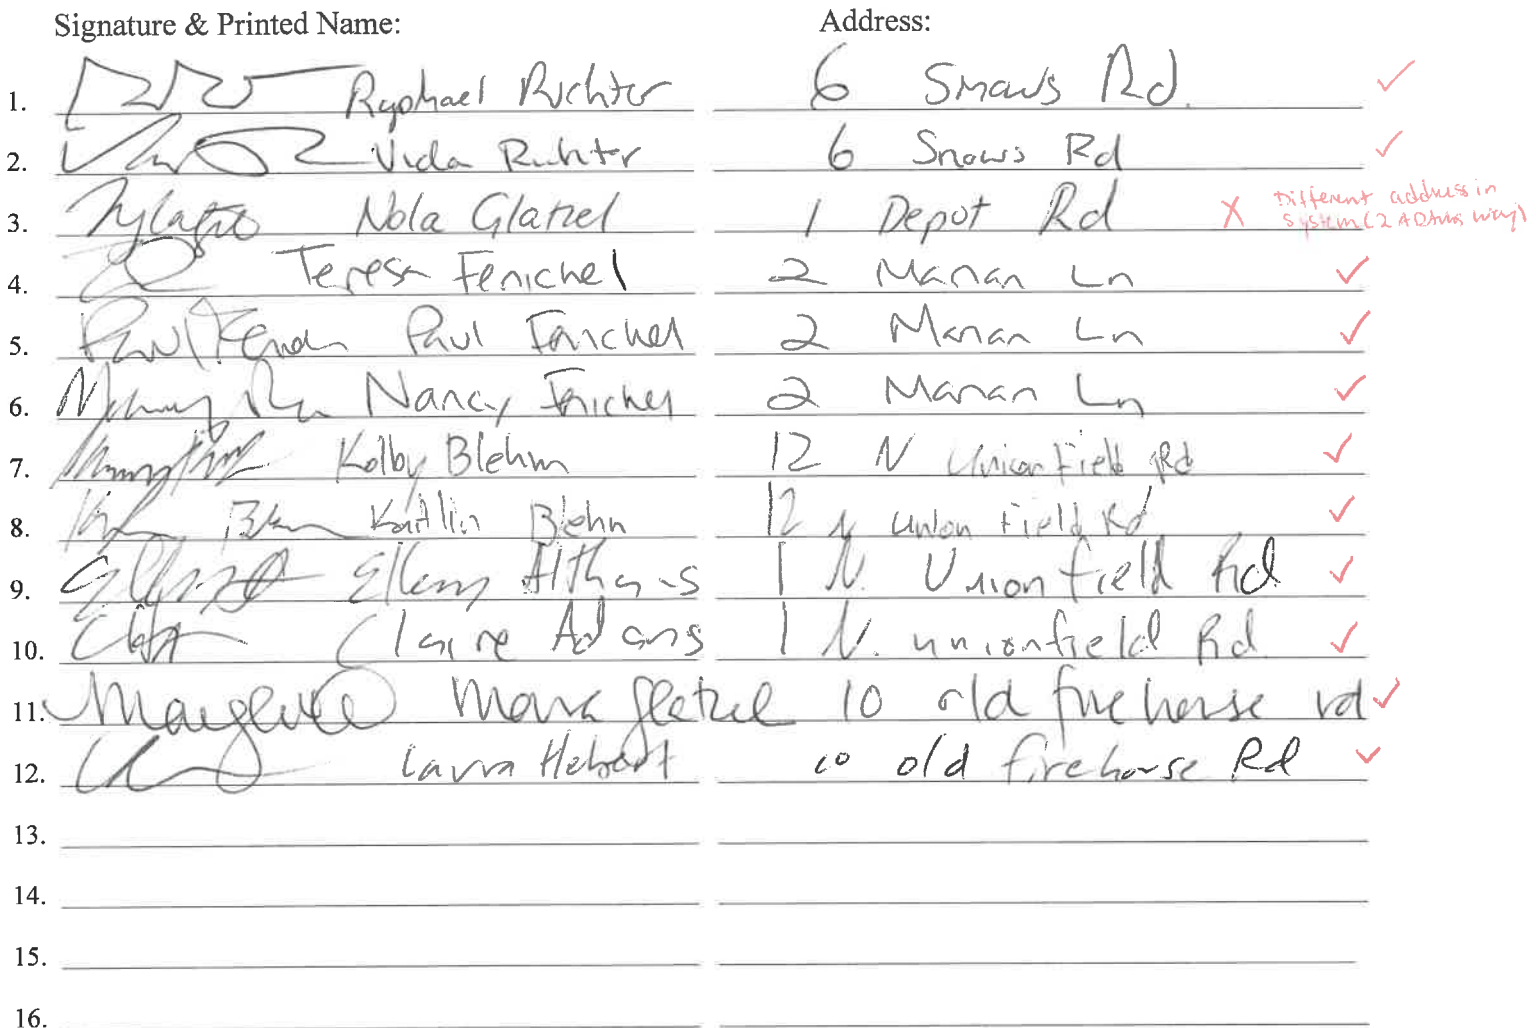 Signature & Printed Name: Address:
1. Raphael Richter 6 Snows Rd. ✓
2. Vida Richter 6 Snows Rd ✓
3. Nola Glatzel 1 Depot Rd X Different address in system (2 Adams way)
4. Teresa Fenichel 2 Manan Ln ✓
5. Paul Fenichel 2 Manan Ln ✓
6. Nancy Fenichel 2 Manan Ln ✓
7. Kolby Blehm 12 N Union Field Rd ✓
8. Kaitlin Blehm 12 N Union Field Rd ✓
9. Ellery Althaus 1 N. Union field Rd ✓
10. Claire Adams 1 N. unionfield Rd ✓
11. Mara Glatzel 10 old firehouse rd ✓
12. Laura Hebert 10 old firehouse Rd ✓
13.
14.
15.
16.